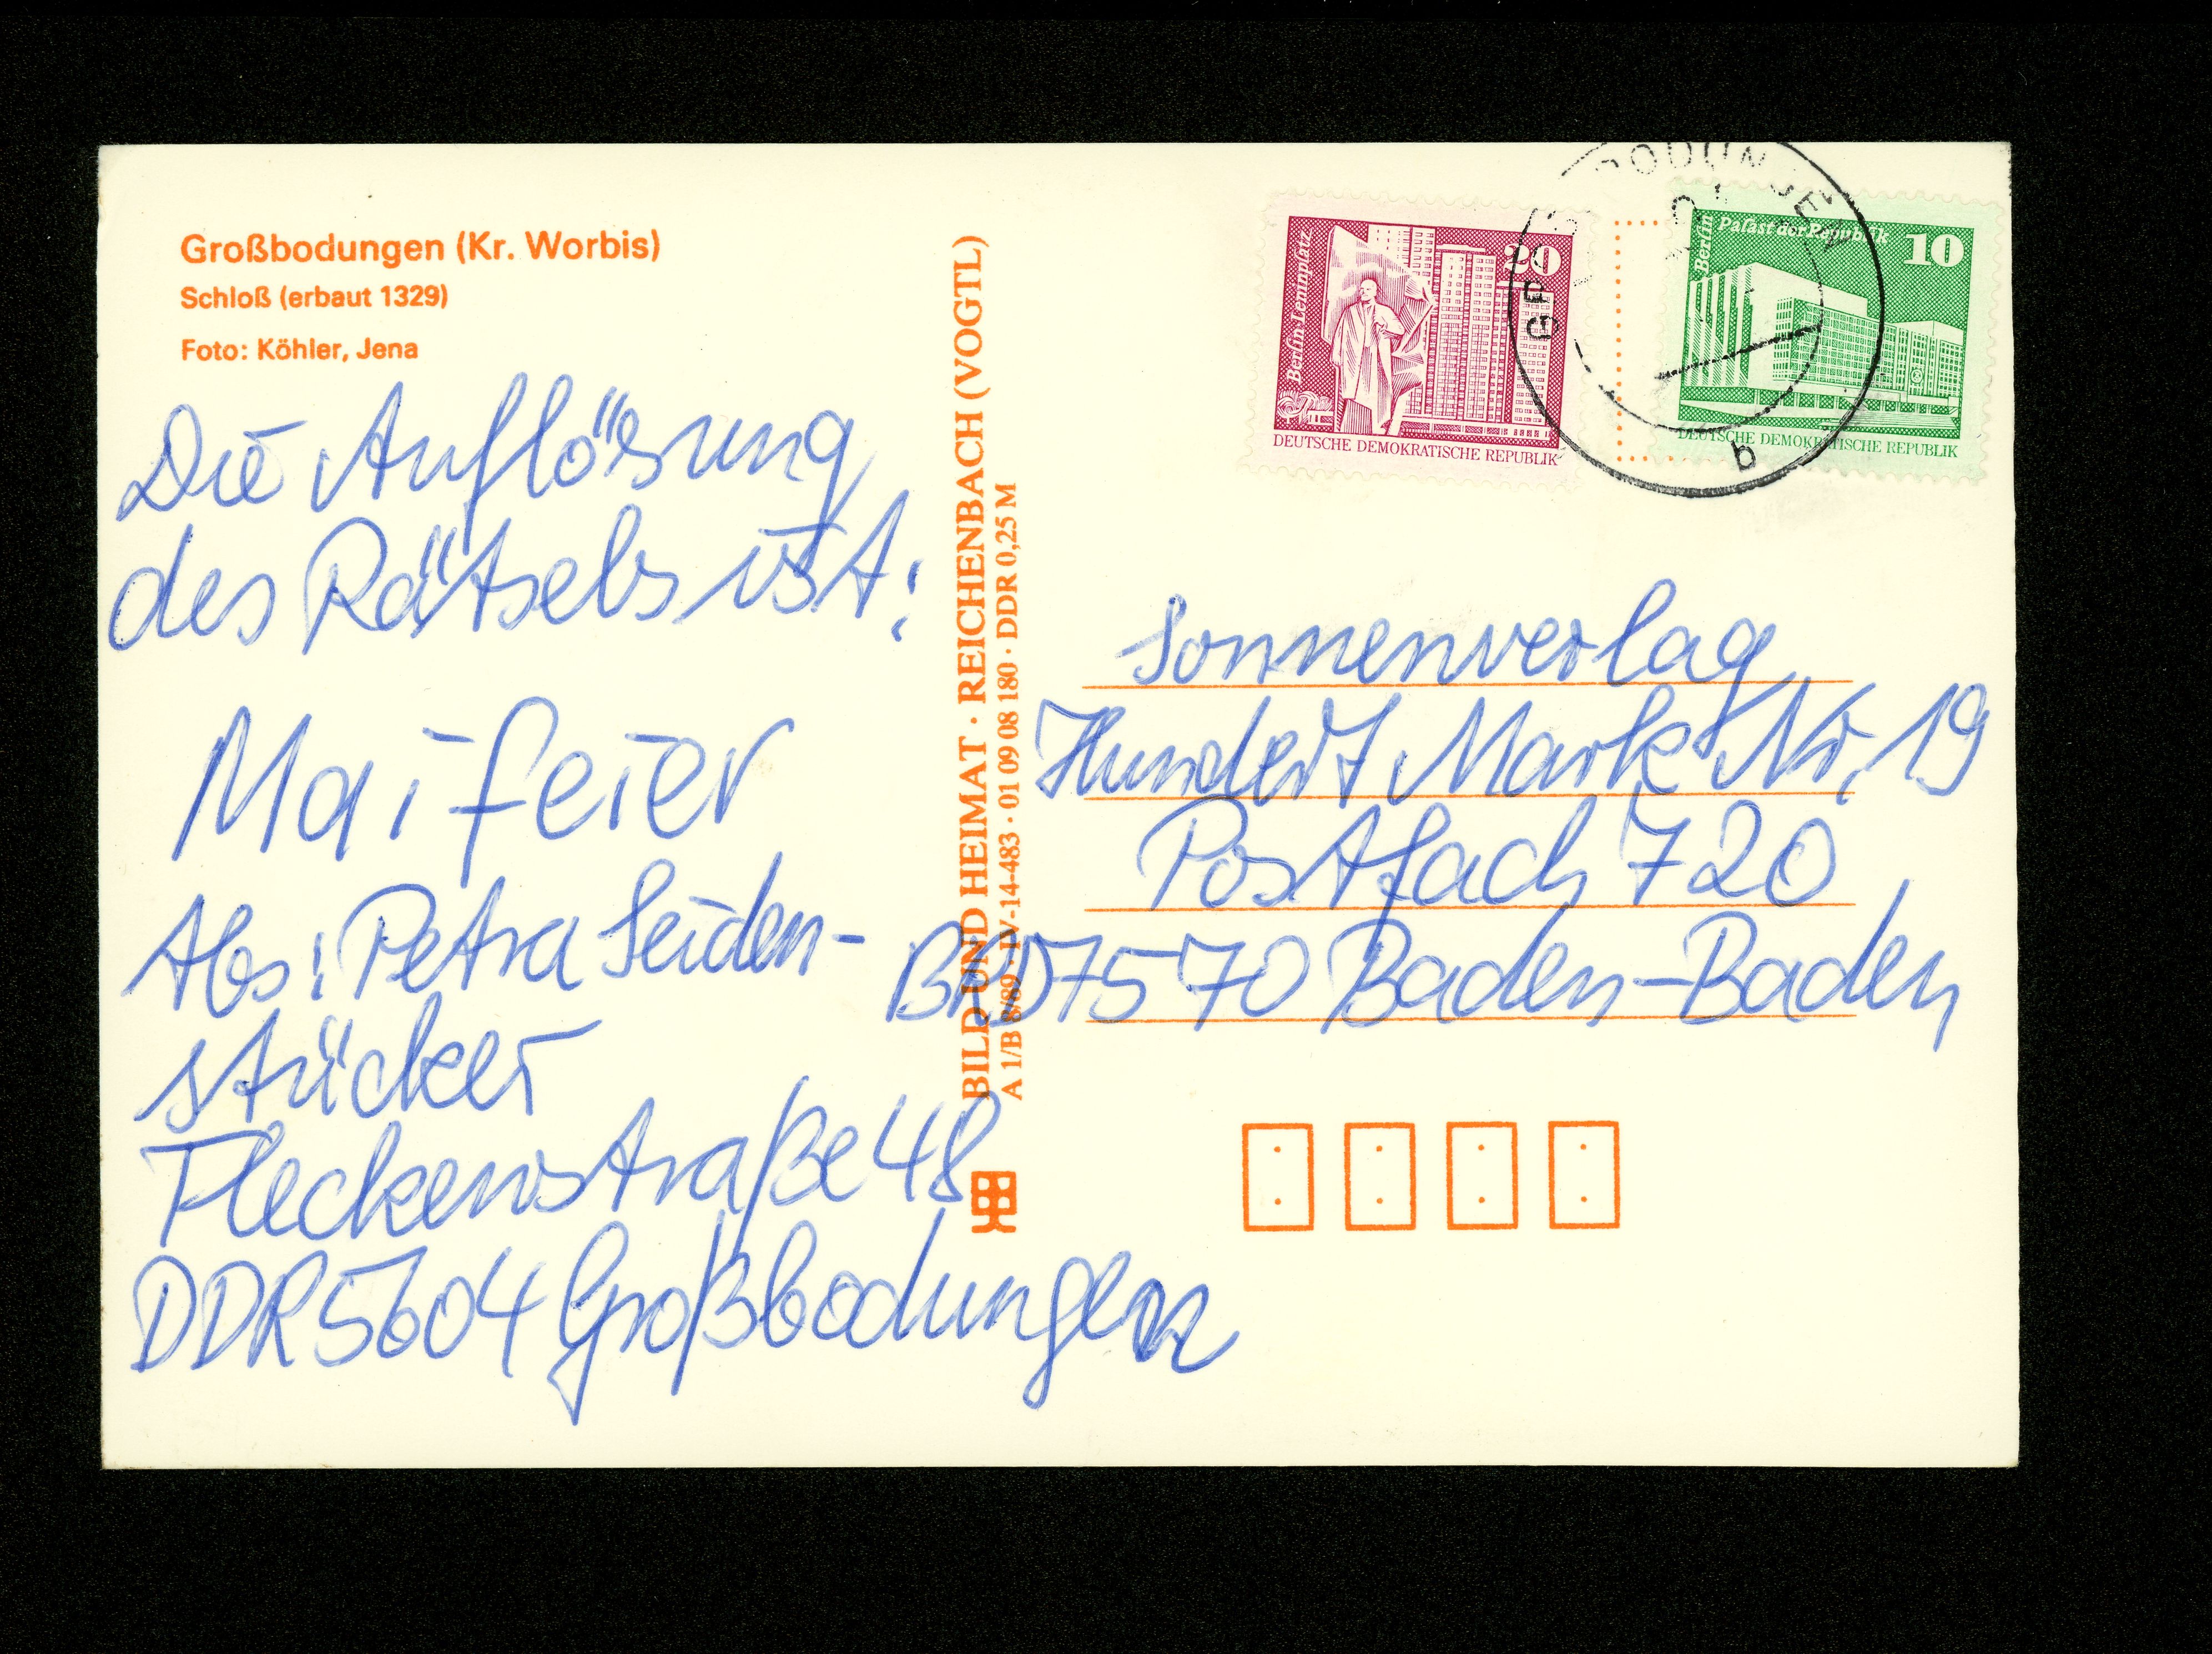 Großbodungen (Kr. Worbis)
Schloß (erbaut 1329)
Foto: Köhler, Jena
Die Auflösung
des Rätsels ist:
Maifeier
Abs: Petra Seiden-
stücker
Fleckenstraße 48
DDR 5604 Großbodungen
BILD UND HEIMAT · REICHENBACH (VOGTL)
A 1/B 8/89 · IV-14-483 · 01 09 08 180 · DDR 0,25 M
Berlin-Leninplatz
20
DEUTSCHE DEMOKRATISCHE REPUBLIK
Berlin Palast der Republik
10
DEUTSCHE DEMOKRATISCHE REPUBLIK
b
Sonnenverlag
Hundert Mark Nr. 19
Postfach 720
BRD 7570 Baden-Baden